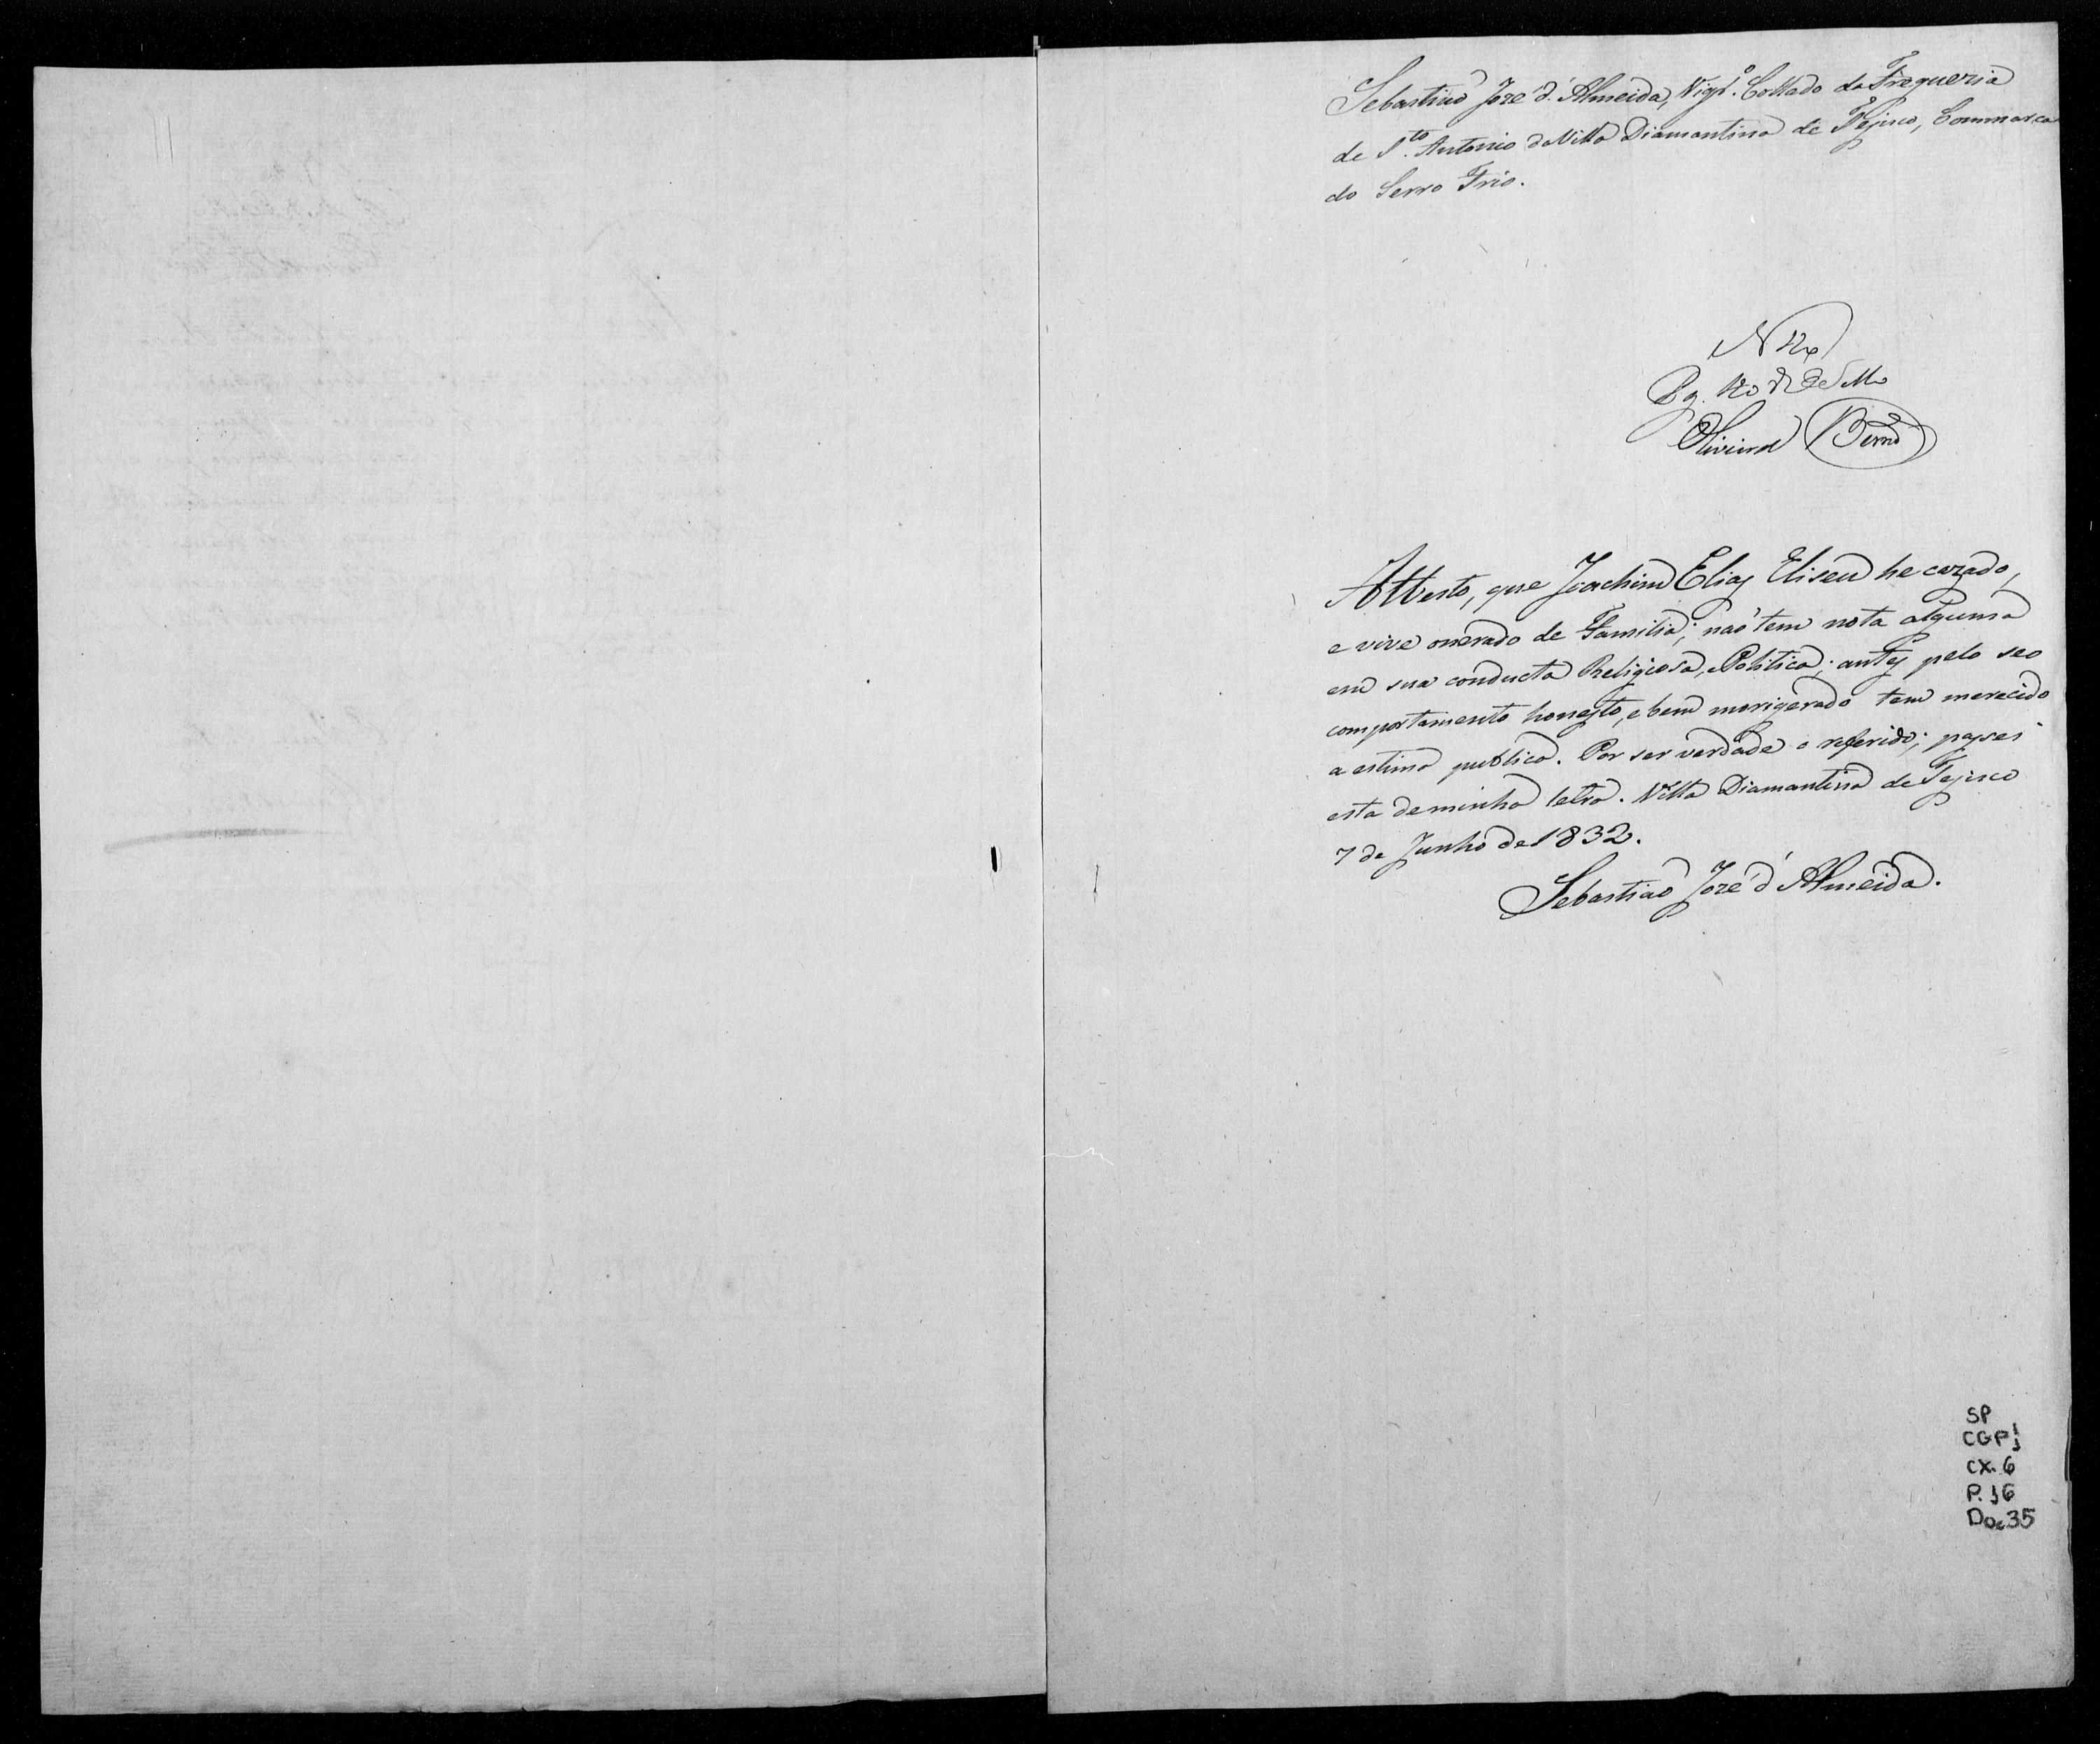 Sebastiaõ Joze d'Almeida, Vigr.º Collado da Fregueria
de S.to Antonio da Villa Diamantina de Tejuco, Commarca
do Serro Frio.
Pg. de Sello
Oliveira
Attesto, que Joachim Elias Eliseu he cazado,
e vive onerado de Familia; naõ tem nota alguma
em sua conducta Religiosa, e Politica; antes pelo seo
comportamento honesto, e bem morigerado tem merecido
a estima publica. Por ser verdade o referido; passei
esta de minha letra. Villa Diamantina de Tejuco
7 de Junho de 1832.
Sebastiaõ Joze d'Almeida.
SP
CGP1
CX. 6
P. 16
Doc 35